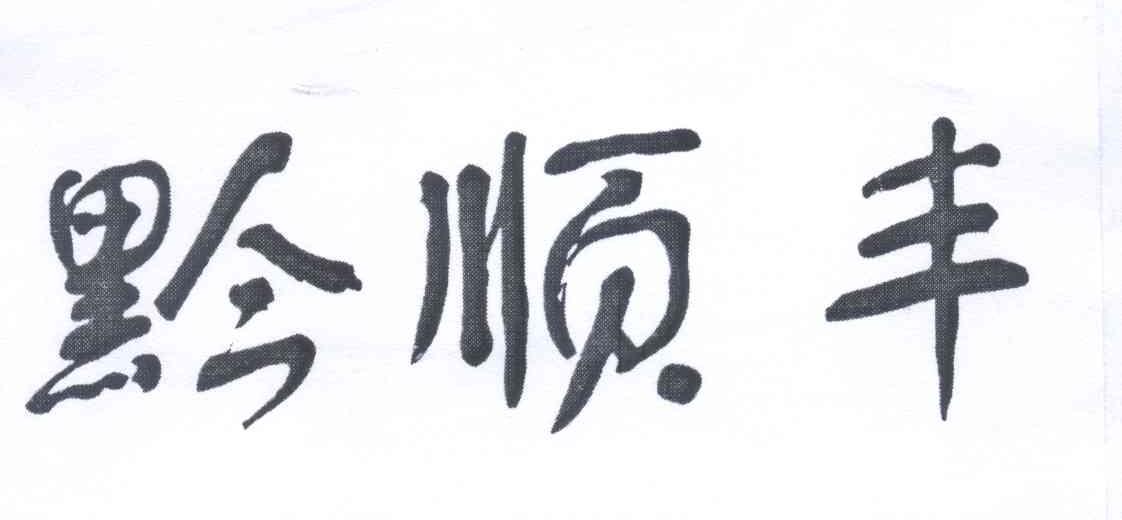 黔顺丰